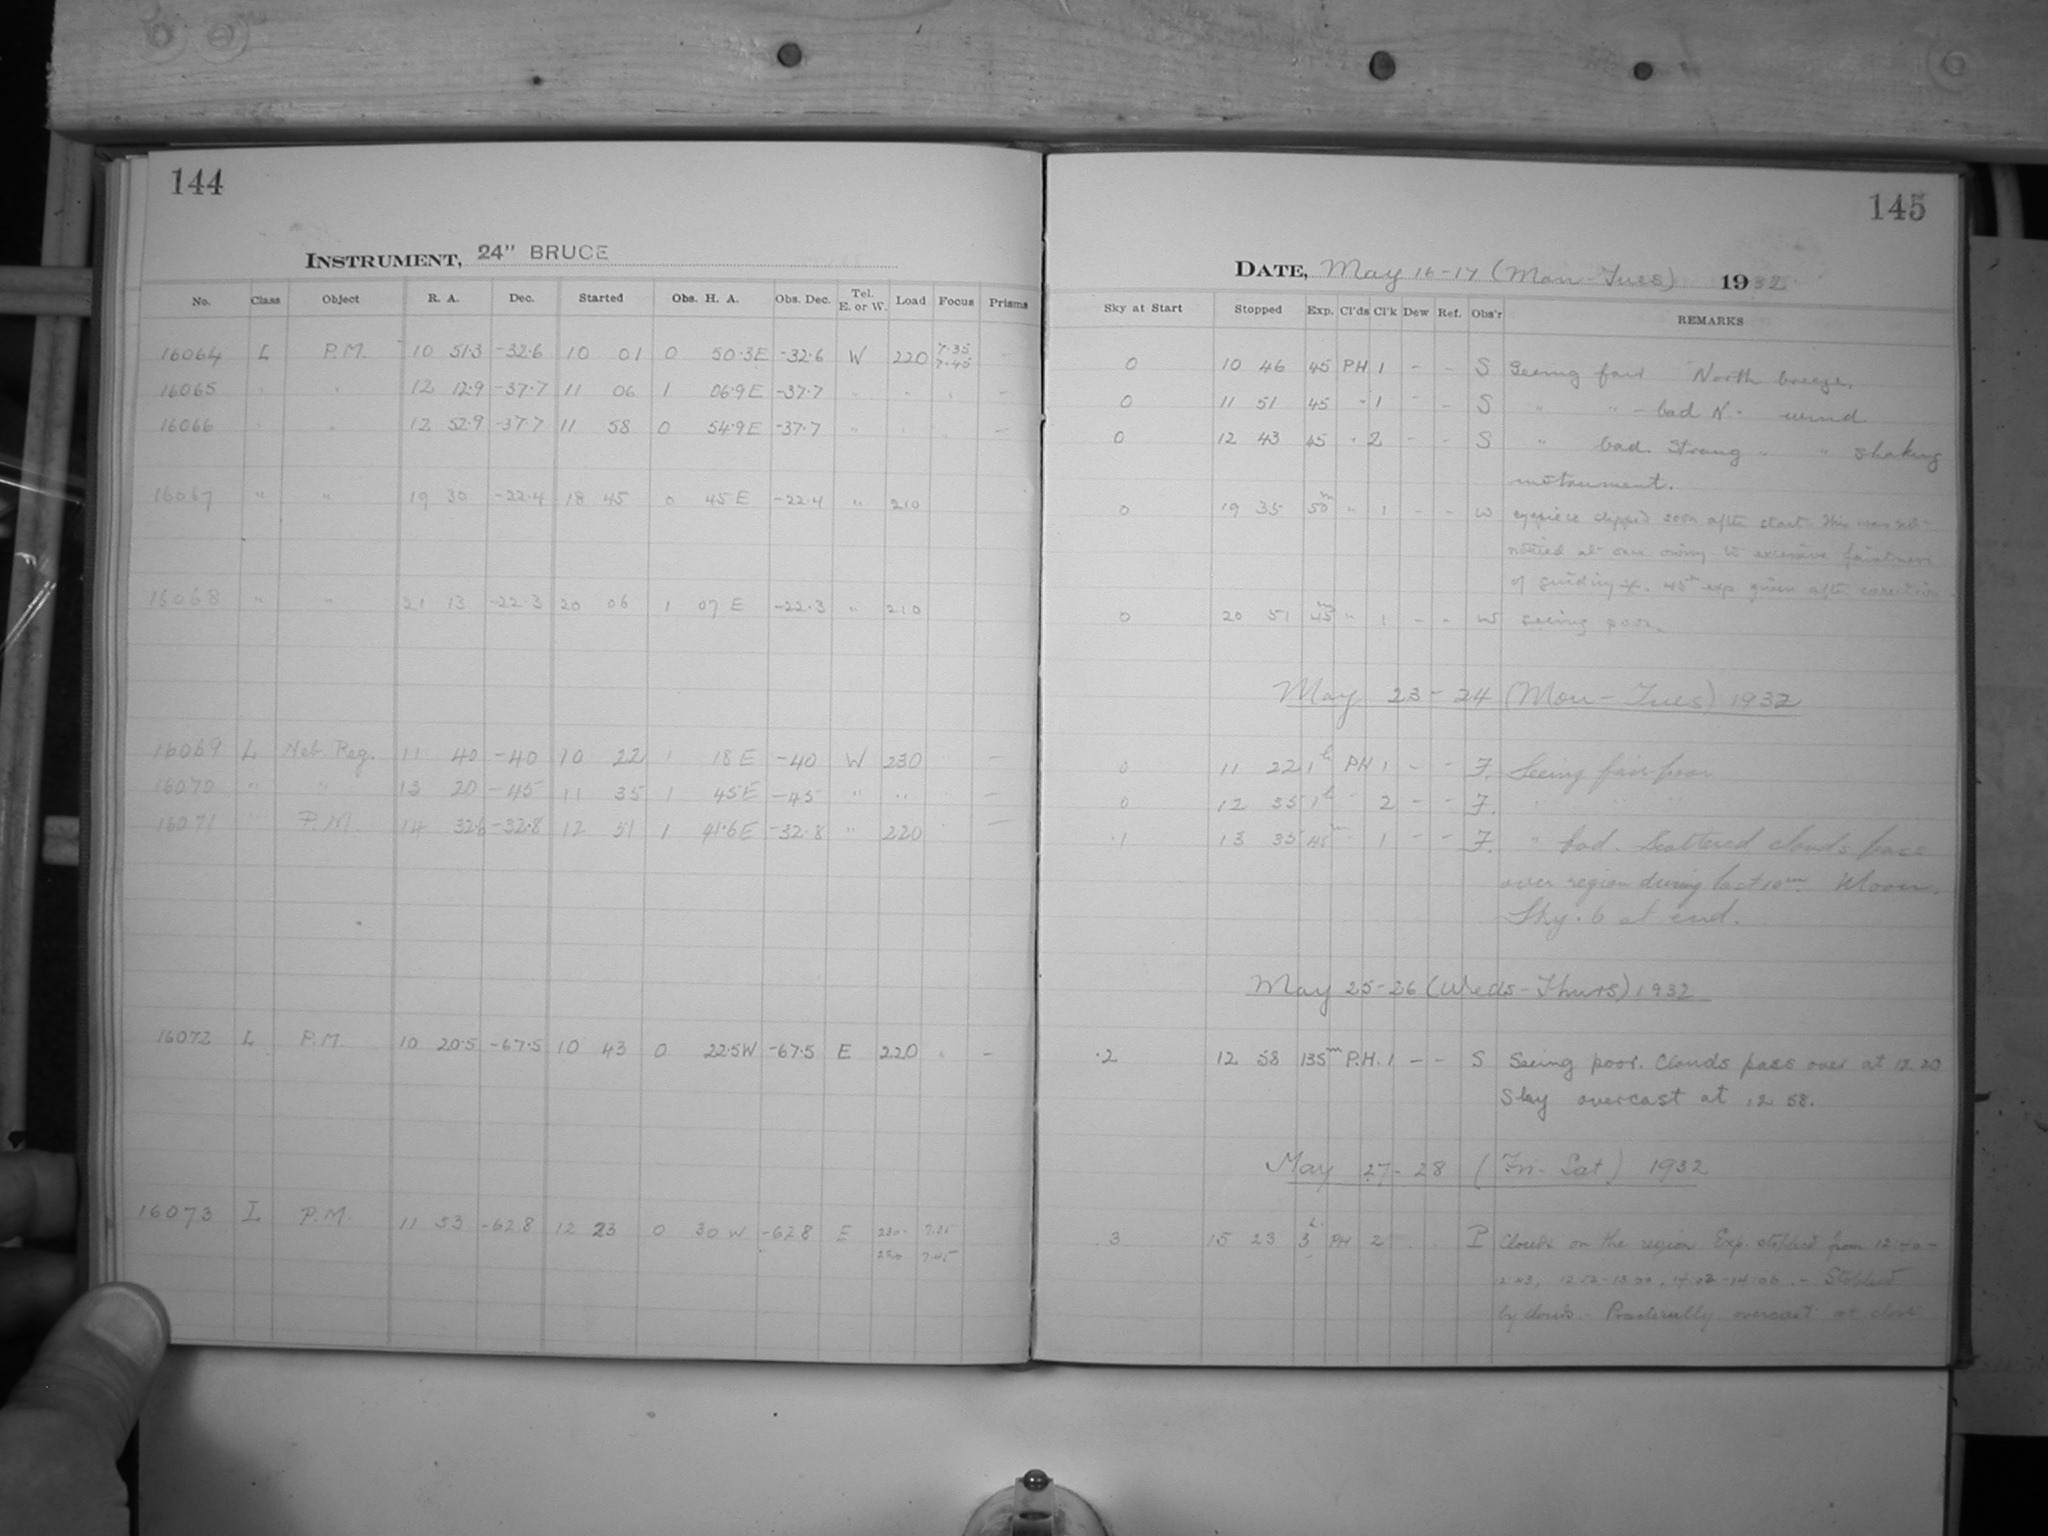 144
INSTRUMENT, 24" BRUCE
No. Class Object R. A. Dec. Started Obs. H. A. Obs. Dec. Tel. E. or W. Load Focus Prisms
16064 L P.M. 10 51.3 -32.6 10 01 0 50.3E -32.6 W 220 7.35 7.45 -
16065 " " 12 12.9 -37.7 11 06 1 06.9E -37.7 " " " -
16066 " " 12 52.9 -37.7 11 58 0 54.9E -37.7 " " " -
16067 " " 19 30 -22.4 18 45 0 45E -22.4 " 210
16068 " " 21 13 -22.3 20 06 1 07E -22.3 " 210
16069 L Neb. Reg. 11 40 -40 10 22 1 18E -40 W 230 " -
16070 " " 13 20 -45 11 35 1 45E -45 " " " -
16071 " P.M. 14 32.6 -32.8 12 51 1 41.6E -32.8 " 220 " -
16072 L P.M. 10 20.5 -67.5 10 43 0 22.5W -67.5 E 220 " -
16073 I P.M. 11 53 -62.8 12 23 0 30W -62.8 E 220 7.35
220 7.45
145
DATE, May 16-17 (Mon-Tues) 1932
Sky at Start Stopped Exp. Cl'ds Cl'k Dew Ref. Obs'r REMARKS
0 10 46 45 PH 1 - - S Seeing fair North breeze.
0 11 51 45 " 1 - - S " " - bad N. wind
0 12 43 45 " 2 - - S " bad. Strong " " shaking
instrument.
0 19 35 50m " 1 - - W eyepiece slipped soon after start. This was not
noticed at once owing to excessive faintness
of guiding *. 45m exp. given after correction.
0 20 51 45m " 1 - - W seeing poor.
May 23-24 (Mon-Tues) 1932
0 11 22 1h PH 1 - - F. Seeing fair-poor
0 12 35 1h " 2 - - F. " " "
.1 13 35 45m " 1 - - F. " bad. Scattered clouds pass
over region during last 10m. Moon.
Sky .6 at end.
May 25-26 (Weds-Thurs) 1932
.2 12 58 135m P.H. 1 - - S Seeing poor. Clouds pass over at 12 20
Sky overcast at 12 58.
May 27-28 (Fri-Sat) 1932
.3 15 23 3h PH 2 P Clouds on the region Exp. stopped from 12:40-
14:02-14:06. - Stopped
by clouds - Practically overcast at close